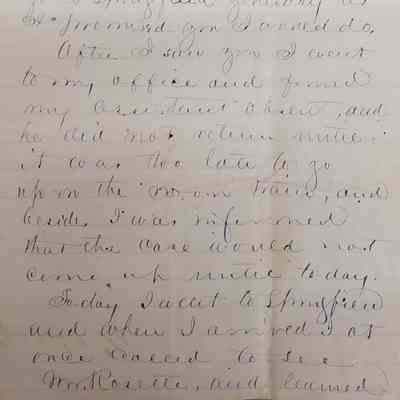 to Springfield yesterday as
I promised you I would do.
After I saw you I went
to my office and found
my assistant absent, and
he did not return until
it was too late to go
up on the noon train, and
beside I was informed
that the case would not
come up until today.
Today I went to Springfield
and when I arrived I at
once called to see
Mr. Rosette, and learned